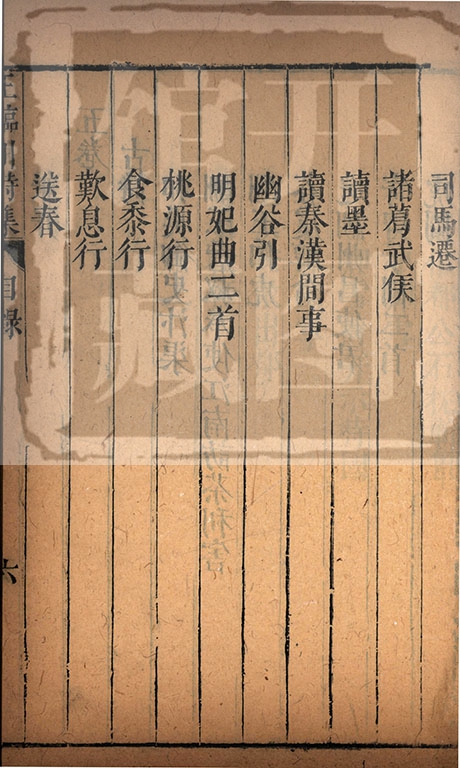 司馬遷
諸葛武侯
讀墨
讀秦漢間事
幽谷引
明妃曲二首
桃源行
食黍行
歎息行
送春
王臨川詩集
目錄
六